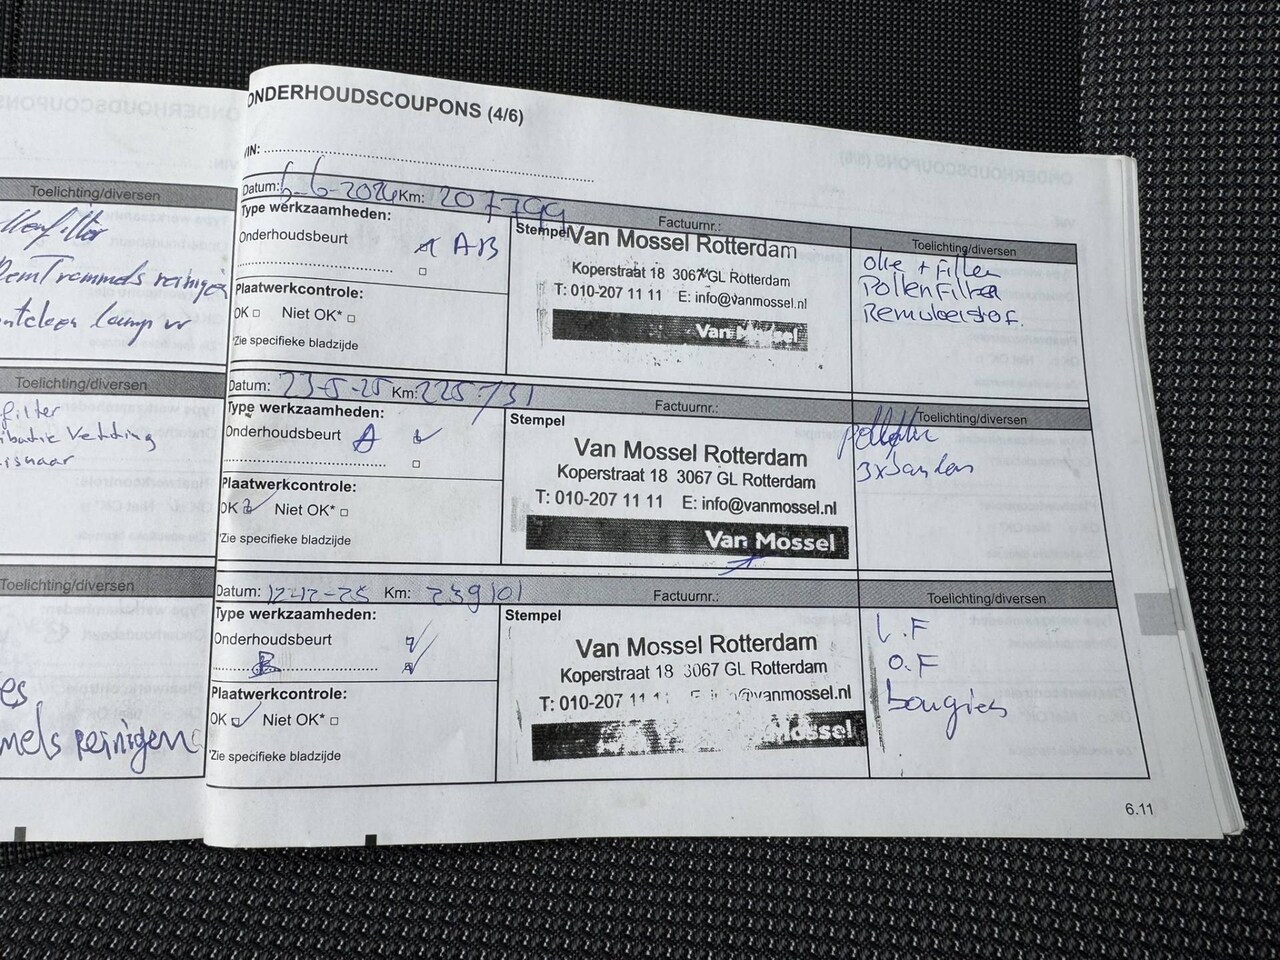 Toelichting/diversen
RemTrommels reinigen
lamp
Toelichting/diversen
filter
Toelichting/diversen
reinigen
ONDERHOUDSCOUPONS (4/6)
VIN:
Datum: 6-6-2024 Km: 207799
Factuurnr.:
Toelichting/diversen
Type werkzaamheden:
Onderhoudsbeurt AB
Plaatwerkcontrole:
OK Niet OK*
*Zie specifieke bladzijde
Stempel
Van Mossel Rotterdam
Koperstraat 18 3067 GL Rotterdam
T: 010-207 11 11 E: info@vanmossel.nl
Van Mossel
Olie + Filter
Pollenfilter
Remvloeistof.
Datum: 23-5-25 Km: 225731
Factuurnr.:
Toelichting/diversen
Type werkzaamheden:
Onderhoudsbeurt A
Plaatwerkcontrole:
OK Niet OK*
*Zie specifieke bladzijde
Stempel
Van Mossel Rotterdam
Koperstraat 18 3067 GL Rotterdam
T: 010-207 11 11 E: info@vanmossel.nl
Van Mossel
Datum: 12-12-25 Km: 239101
Factuurnr.:
Toelichting/diversen
Type werkzaamheden:
Onderhoudsbeurt
B
Plaatwerkcontrole:
OK Niet OK*
*Zie specifieke bladzijde
Stempel
Van Mossel Rotterdam
Koperstraat 18 3067 GL Rotterdam
T: 010-207 11 1 @vanmossel.nl
Mossel
L.F
O.F
bougies
6.11